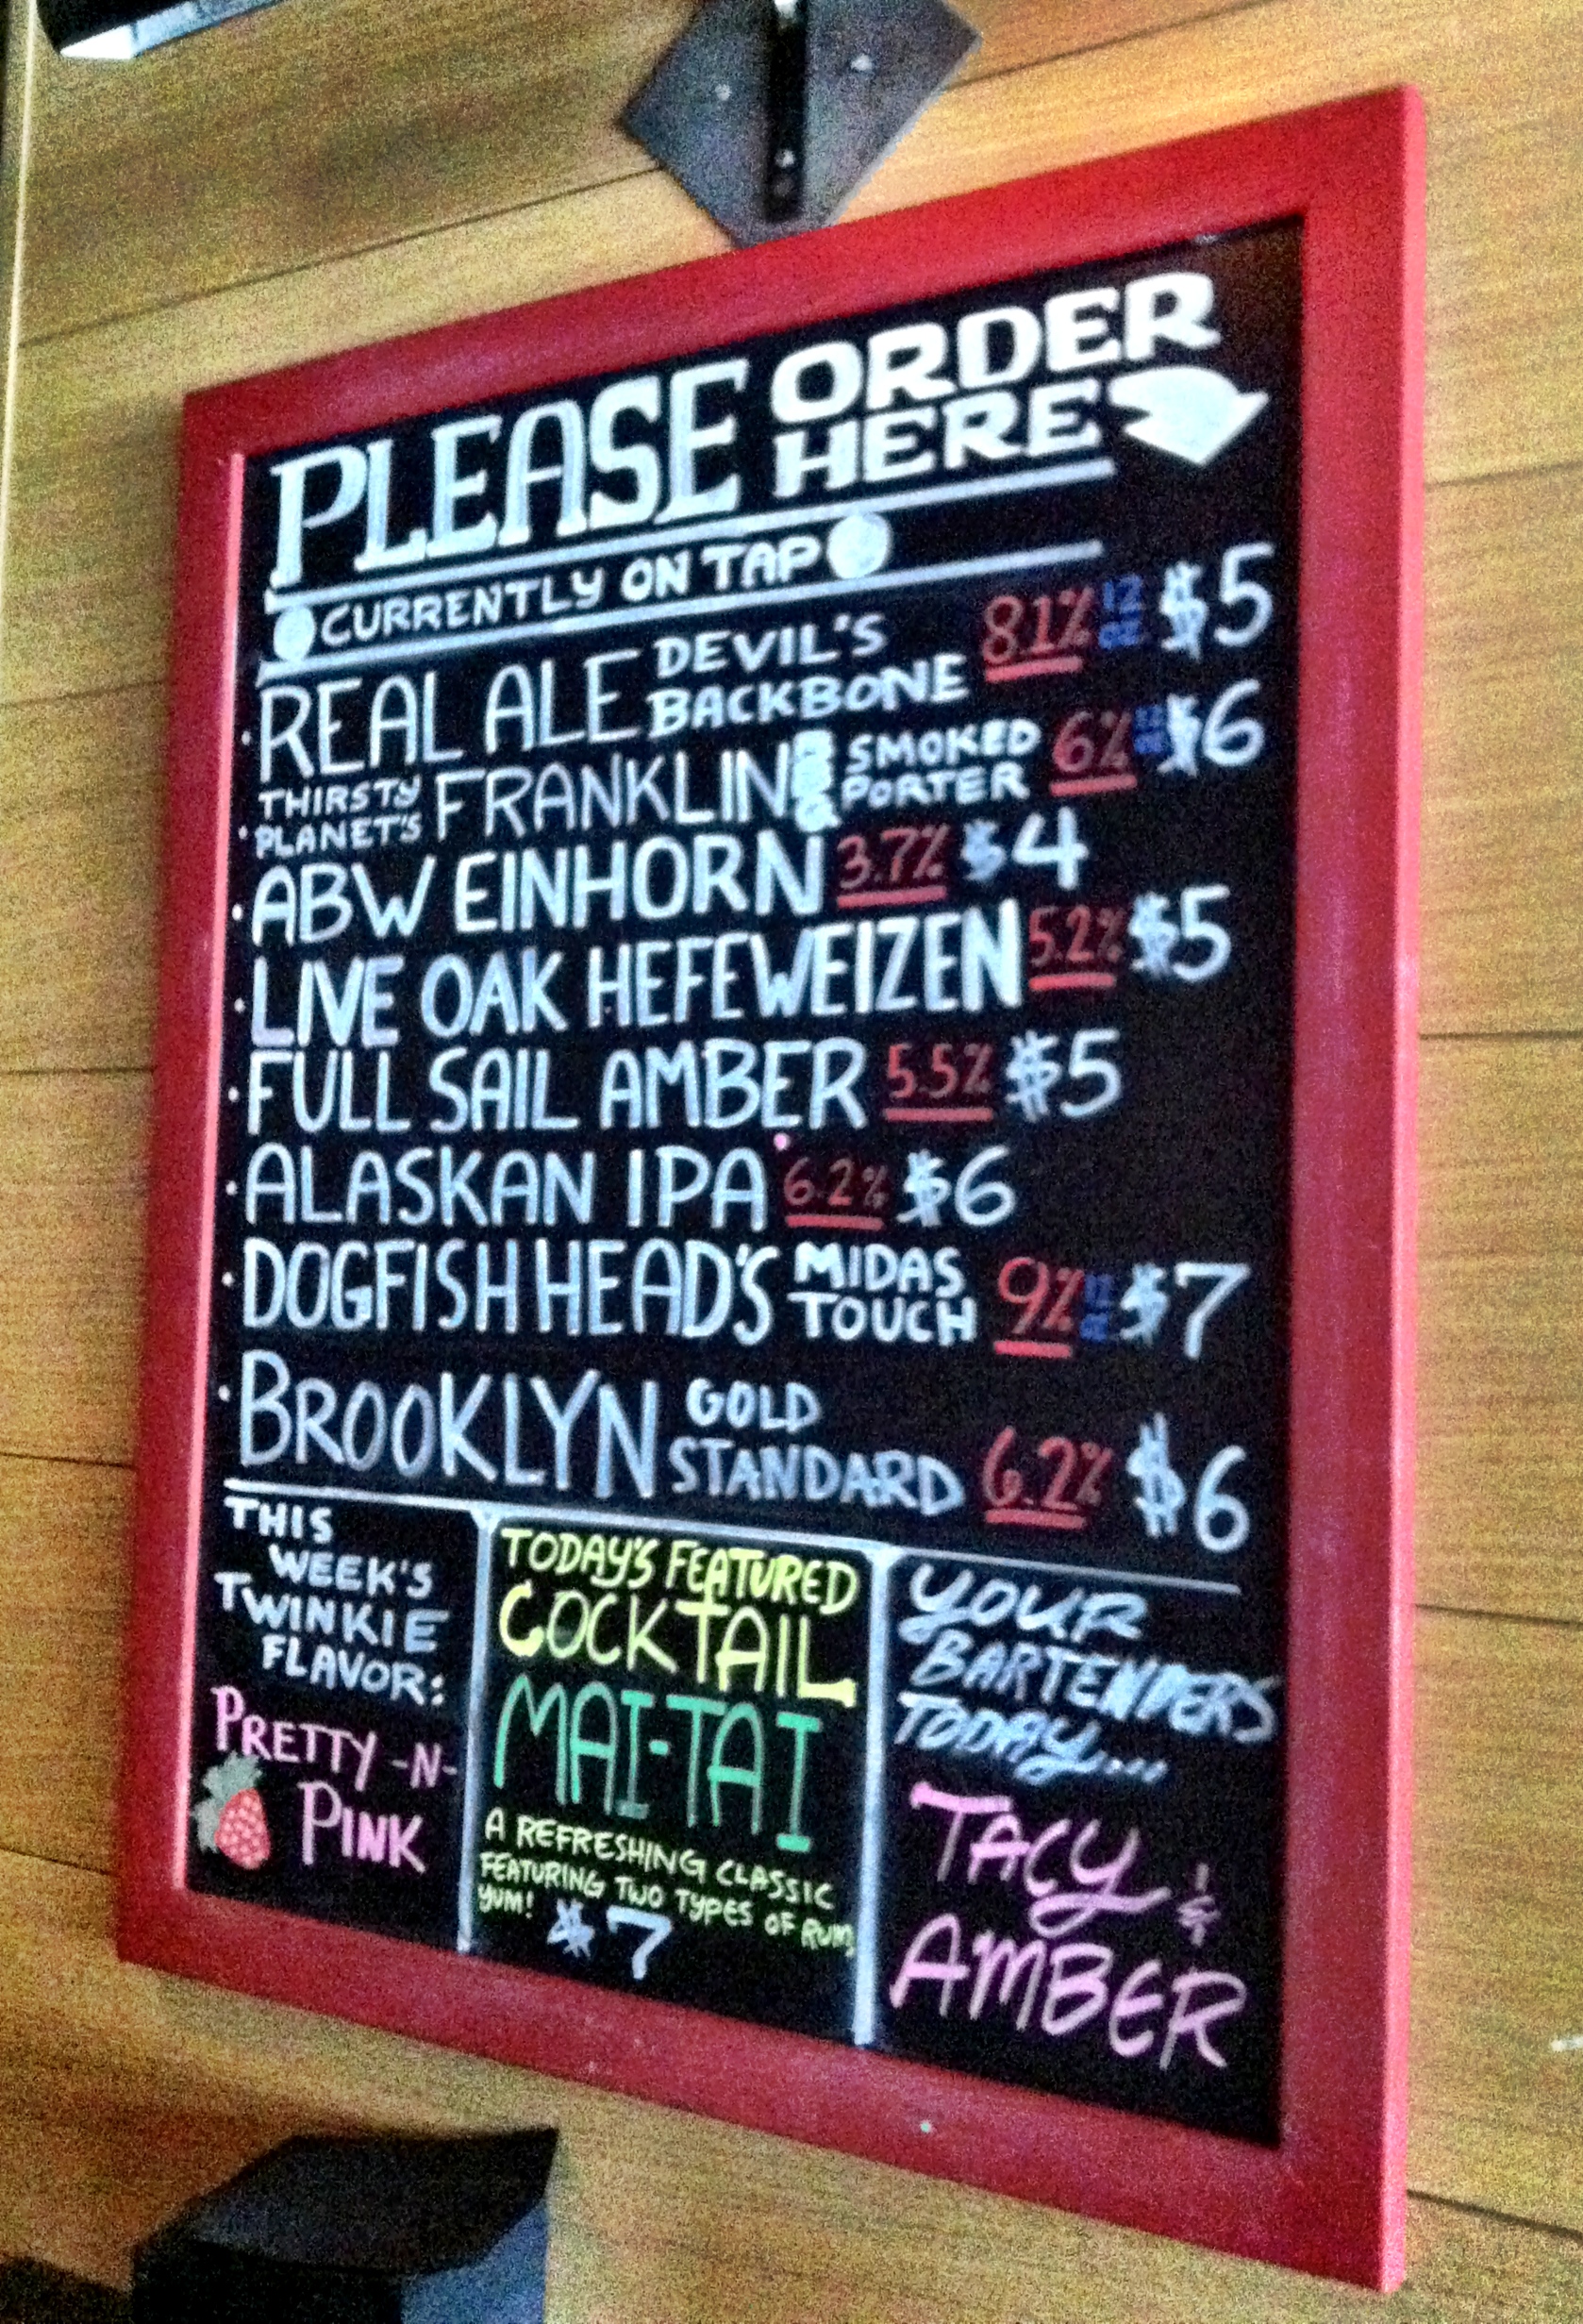 PLEASE ORDER HERE
CURRENTLY ON TAP
· REAL ALE DEVIL'S BACKBONE 8.1% 12 oz. $5
· THIRSTY PLANET'S FRANKLIN SMOKED PORTER 6% $6
· ABW EINHORN 3.7% $4
· LIVE OAK HEFEWEIZEN 5.2% $5
· FULL SAIL AMBER 5.5% $5
· ALASKAN IPA 6.2% $6
· DOGFISH HEAD'S MIDAS TOUCH 9% $7
· BROOKLYN GOLD STANDARD 6.2% $6
THIS
WEEK'S
TWINKIE
FLAVOR:
PRETTY-N-
PINK
TODAY'S FEATURED
COCKTAIL
MAI-TAI
A REFRESHING CLASSIC
FEATURING TWO TYPES OF RUM
YUM! $7
YOUR
BARTENDERS
TODAY...
TACY &
AMBER